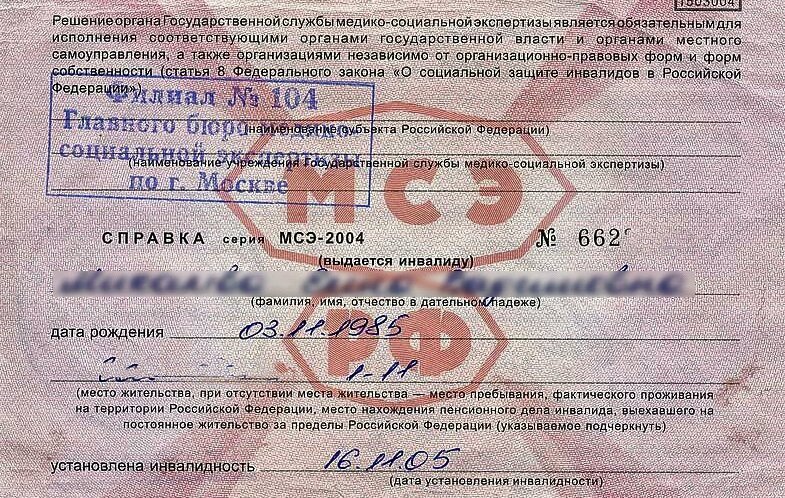 1503004
Решение органа Государственной службы медико-социальной экспертизы является обязательным для
исполнения соответствующими органами государственной власти и органами местного
самоуправления, а также организациями независимо от организационно-правовых форм и форм
собственности (статья 8 Федерального закона «О социальной защите инвалидов в Российской
Федерации»)
Филиал № 104
Главного бюро медико-
(наименование субъекта Российской Федерации)
социальной экспертизы
(наименование учреждения Государственной службы медико-социальной экспертизы)
по г. Москве
МСЭ
СПРАВКА серия МСЭ-2004 № 662
(выдается инвалиду)
(фамилия, имя, отчество в дательном падеже)
РФ
дата рождения 03.11.1985
1-11
(место жительства, при отсутствии места жительства — место пребывания, фактического проживания
на территории Российской Федерации, место нахождения пенсионного дела инвалида, выехавшего на
постоянное жительство за пределы Российской Федерации (указываемое подчеркнуть)
установлена инвалидность 16.11.05
(дата установления инвалидности)